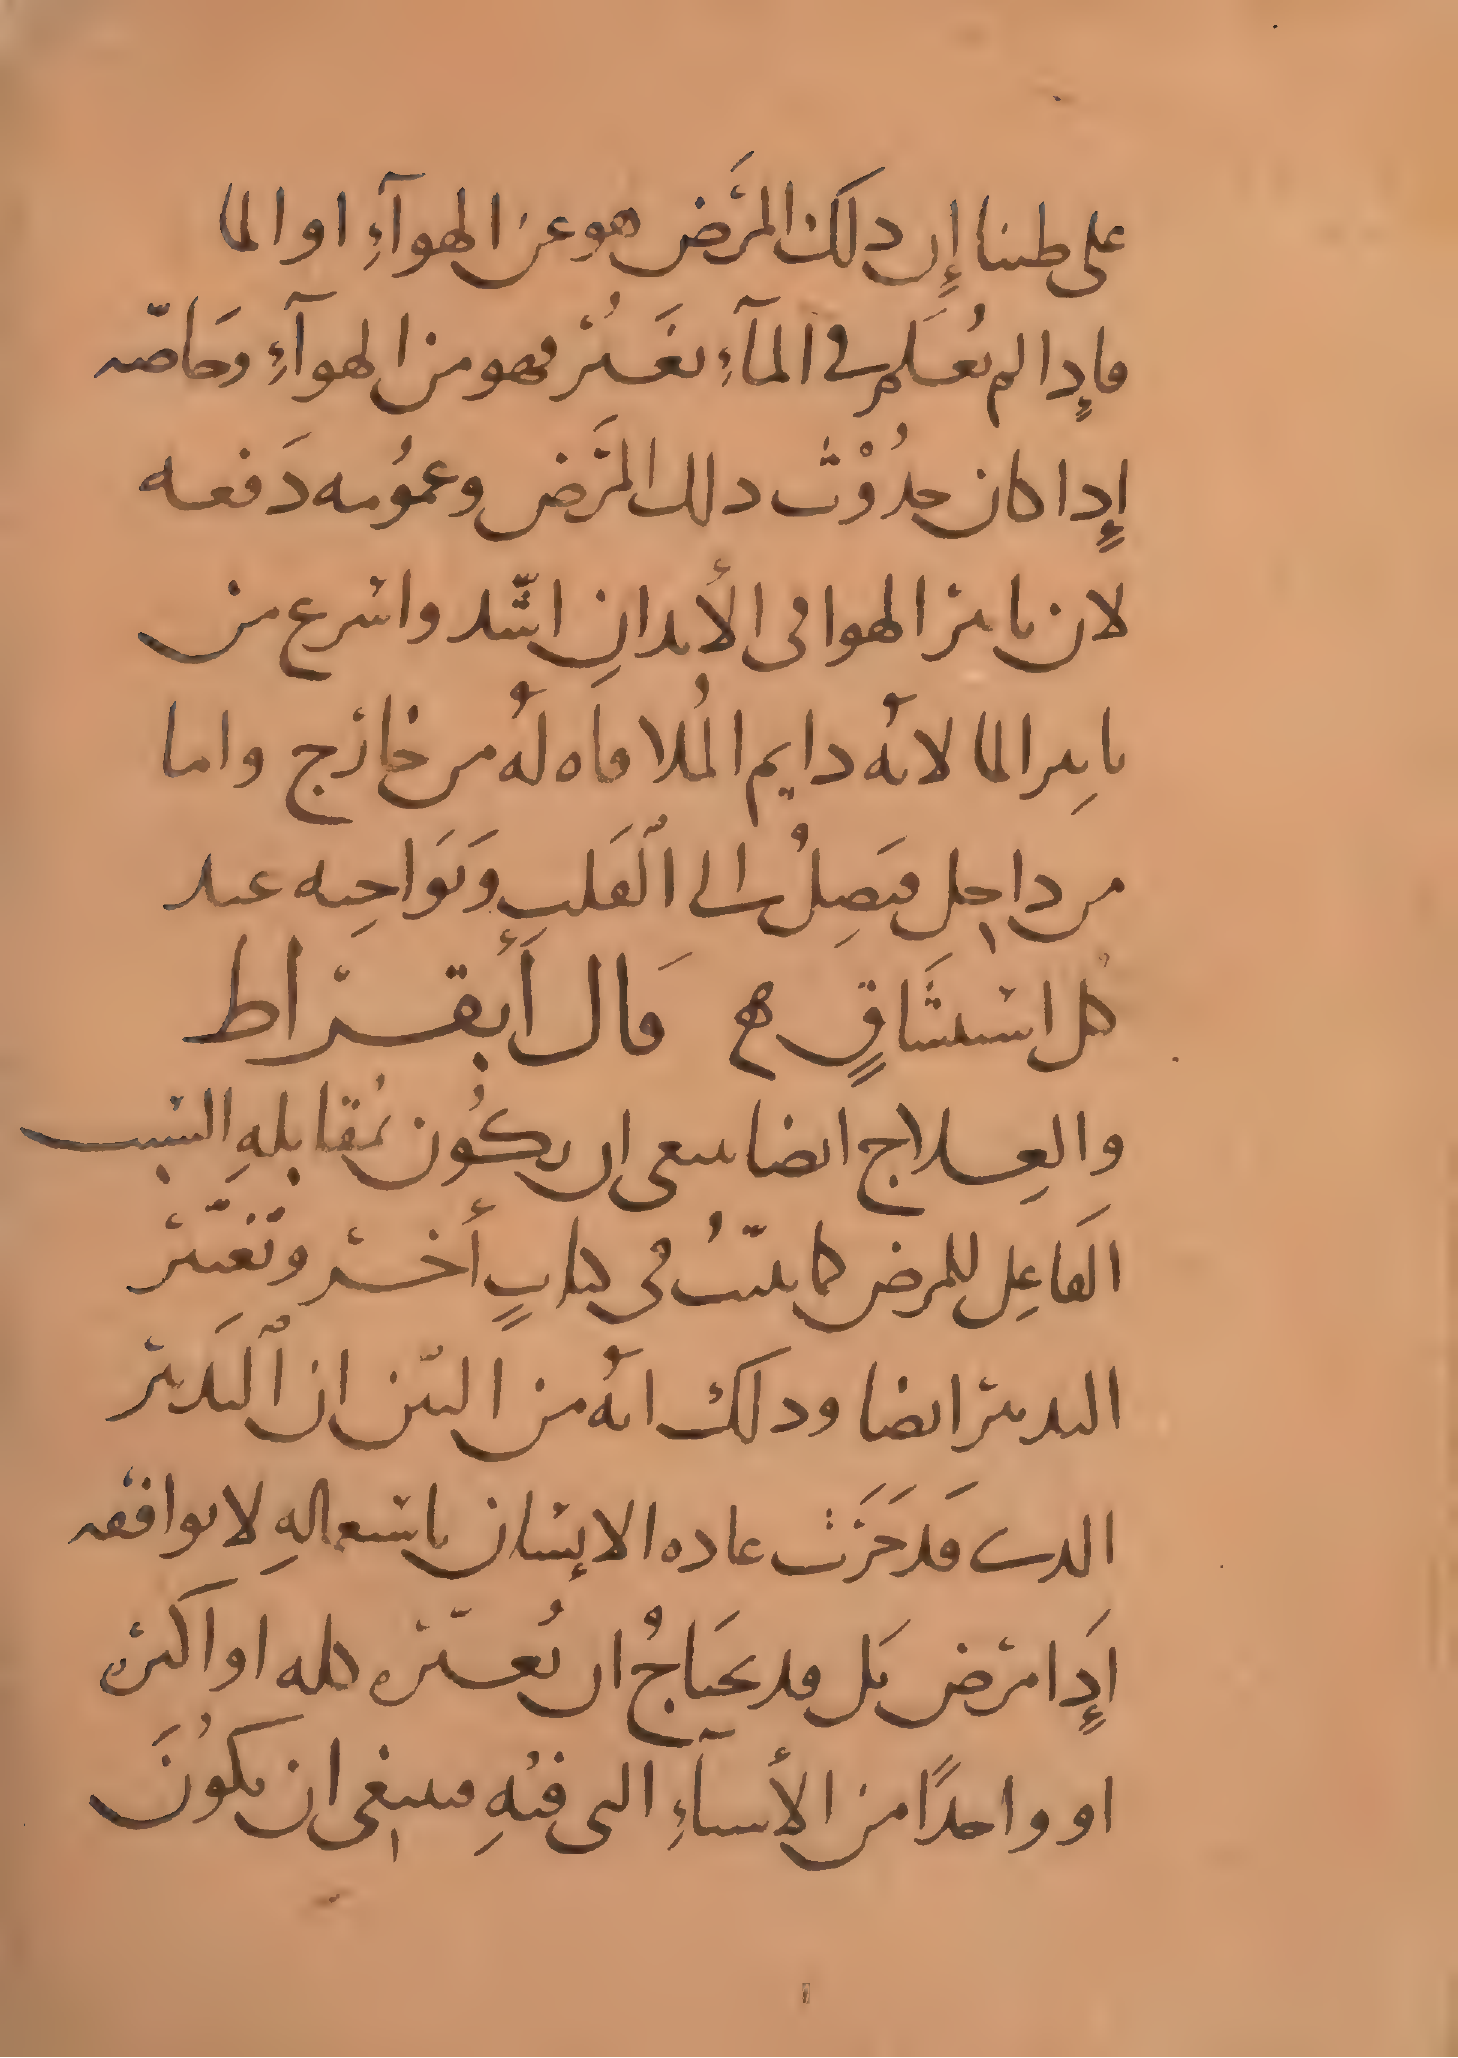 على طننا إن ذلك المرض هو عن الهوآءِ او الما
فإذا لم نعلم في المآءِ تغيُّر فهو من الهوآءِ وخاصّه
إذا كان حدُوْث ذلك المرَض وعمُومه دَفعه
لان تاثير الهوا فى الأبدانِ اشّد واسرع من
تاثير الما لانهُ دايم المُلاقاه لهُ من خارج واما
من داخل فيَصِلُ الى ٱلقَلبِ ونَوَاحِيه عند
كُل استنشَاقٍ ه قَال أَبقراط
والعِلاج ايضا ينبغى ان يكُون بمُقابلهِ السبب
الفَاعِل للمرض كما بينّتُ فى كتابٍ أخر وتَغيّير
التدبير ايضا وذلك انهُ من البيّن ان ٱلتَدبير
الذى قَد جَرَت عاده الانِسان باستعمالهِ لا يوافقه
إَذا مرض بَل قد يَحتاجُ ان نُغيّره كله او اكثره
او واحدًا من الأسبآءِ التى فيهِ فينبغى ان يكوُنَ